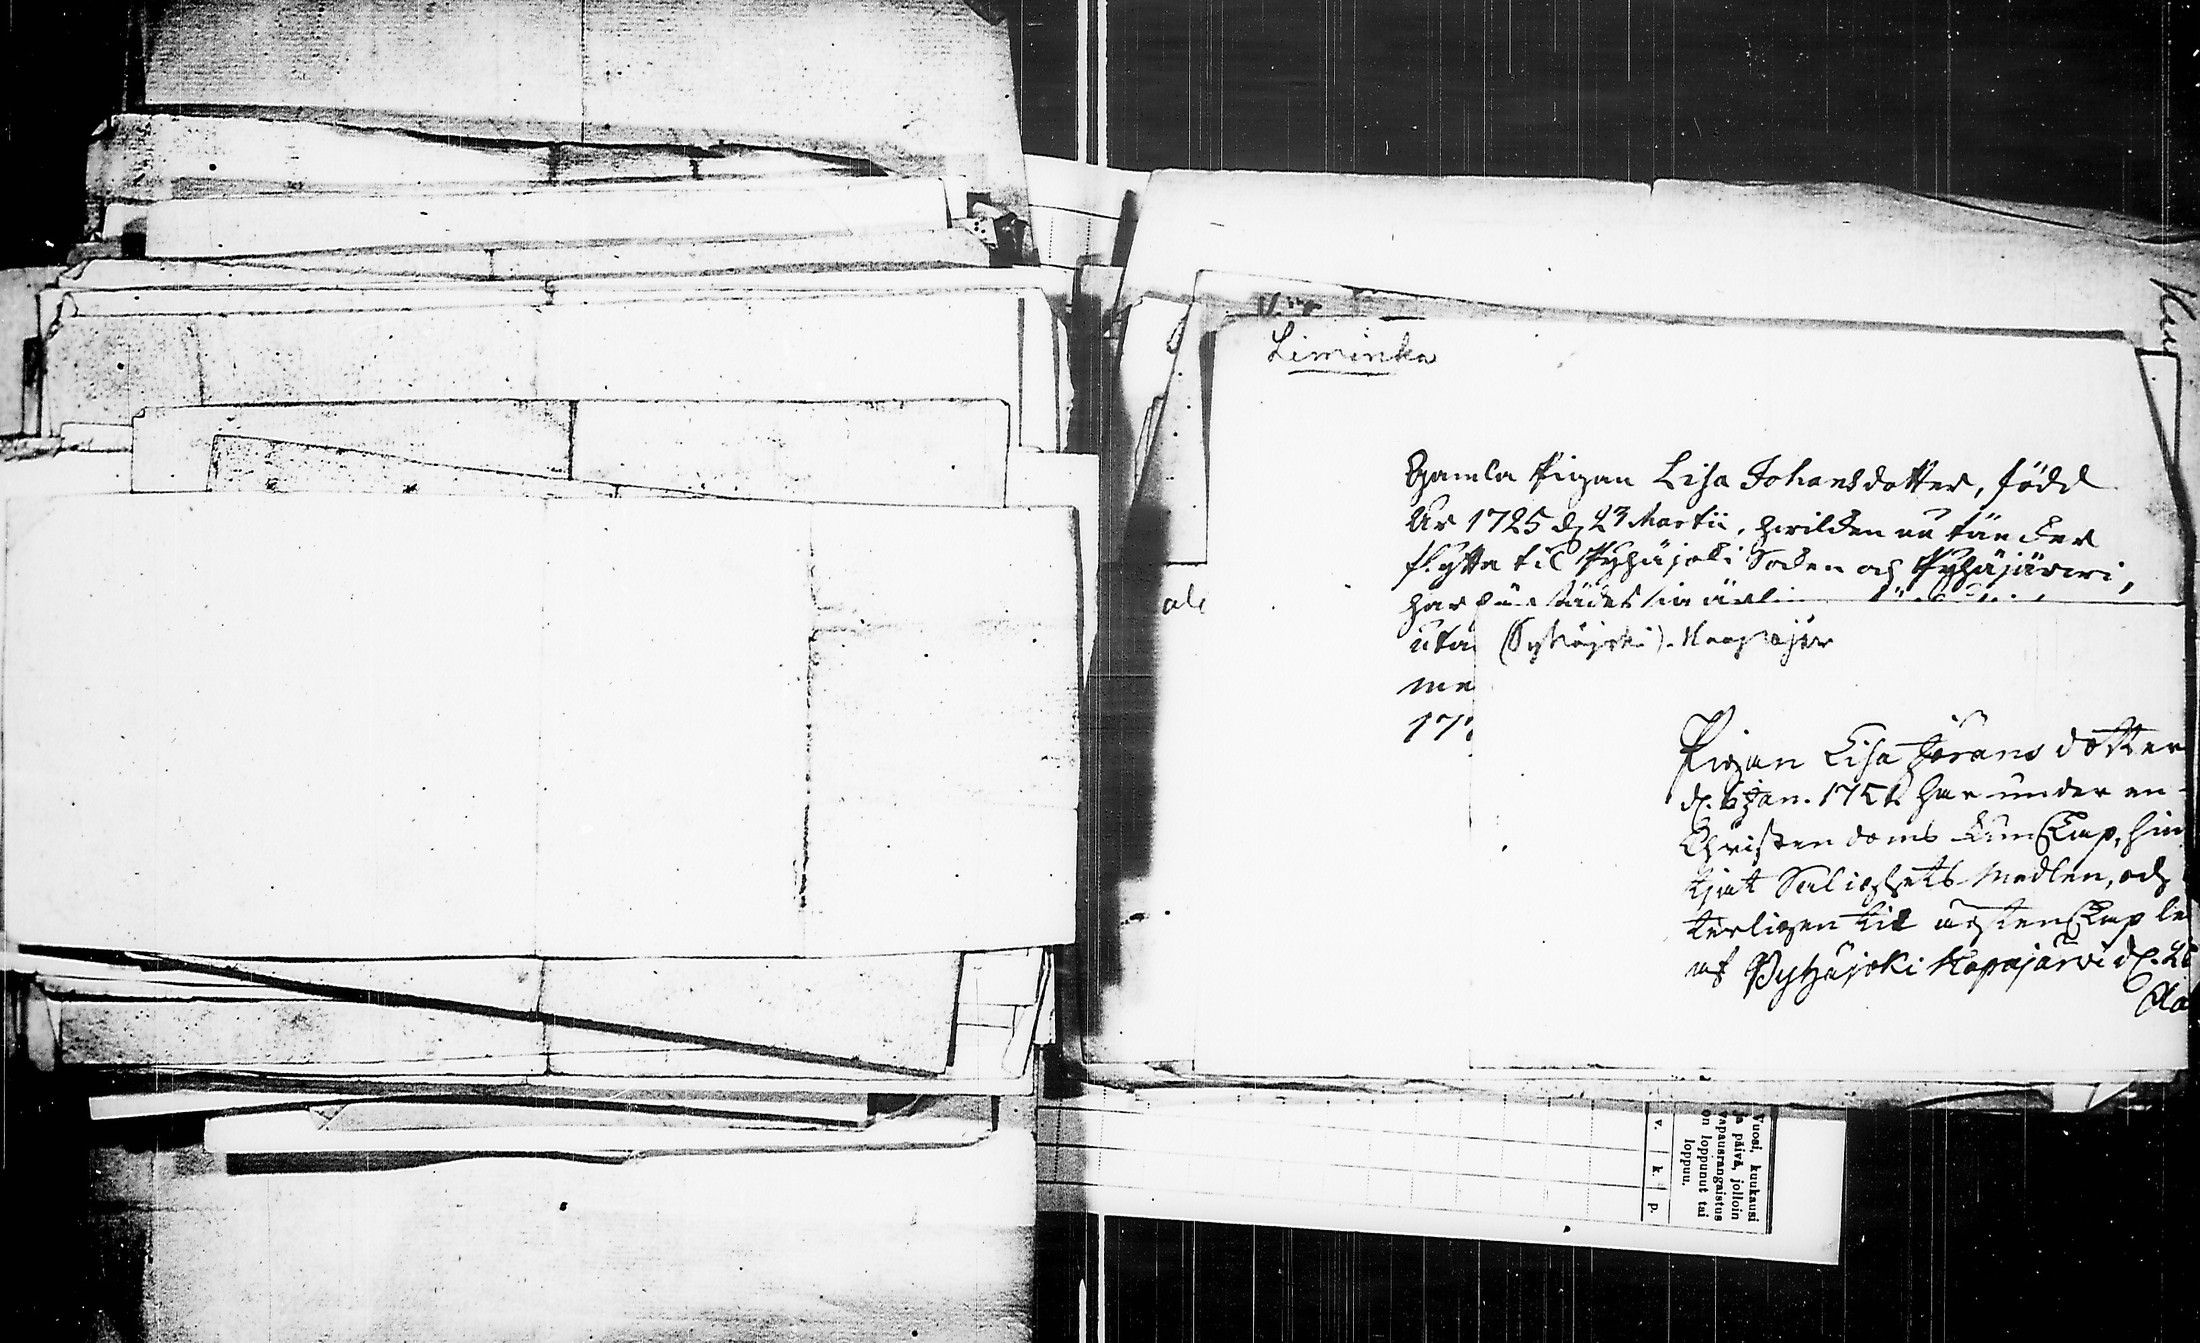 Liminka
Gamla Pigan Lisa Johansdotter, född
År 1725 d. 23 Martii, hwilken nu täncker
flytta til Pyhäjoki Socken och Pyhäjärwi,
har
uta
me
177
(Pyhäjoki). Haapajär
Pigan Lisa Jörans dotter
d. 6 Jan. 1751. har under en
Christendoms kunskap, sin
tjat Salighets Medlen, och
terligen til ägtenskap le
af Pyhäjoki Hapajärwi d. 26
ale
Vuosi, kuukausi
ja päivä, jolloin
vapausrangaistus
on loppunut tai
loppuu.
v. k. p.